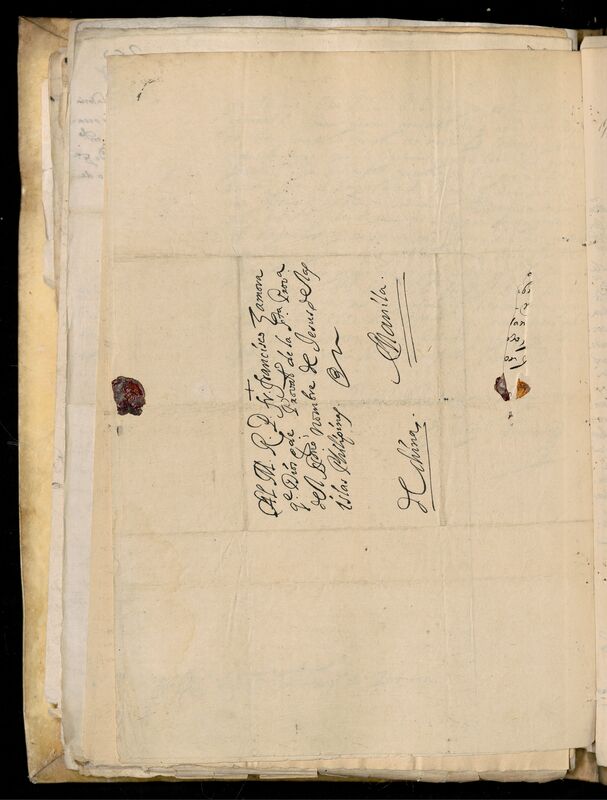 +
Al M. R. P. fr. Francisco Zamora
q.e Dios g.de Provin.l de la S.ta Prov.a
del S.mo Nombre de Jesus de las
islas Philipinas. En
Manila.
de china.